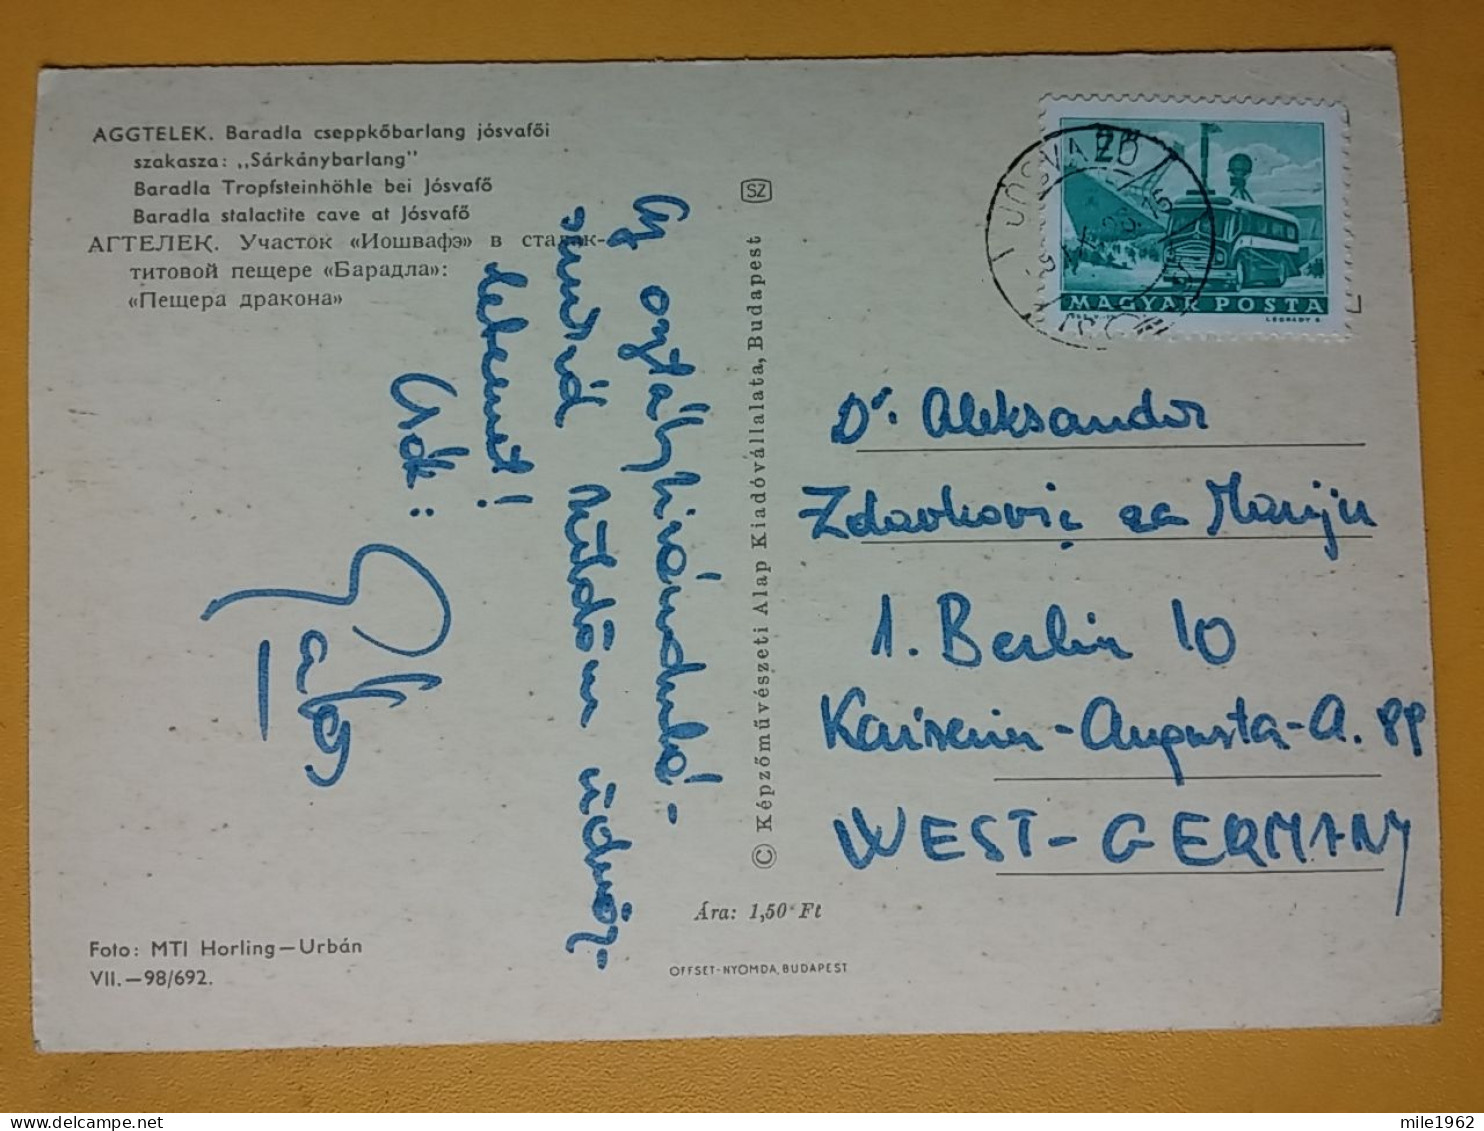 AGGTELEK. Baradla cseppkőbarlang jósvafői
szakasza: „Sárkánybarlang”
Baradla Tropfsteinhöhle bei Jósvafő
Baradla stalactite cave at Jósvafő
АГТЕЛЕК. Участок «Иошвафэ» в сталак-
титовой пещере «Барадла»:
«Пещера дракона»
Egy osztálykiránduló-
sunkról küldöm üdvöz-
letemet!
Üdv:
SZ
© Képzőművészeti Alap Kiadóvállalata, Budapest
JÓSVAFŐ
MAGYAR POSTA
LÉGRÁDY S.
Dr. Aleksandor
Zdavkovic za Mariju
1. Berlin 10
Kaiserin-Augusta-A. 88
WEST-GERMANY
Ára: 1,50 Ft
Foto: MTI Horling—Urbán
VII.—98/692.
OFFSET-NYOMDA, BUDAPEST
mile1962